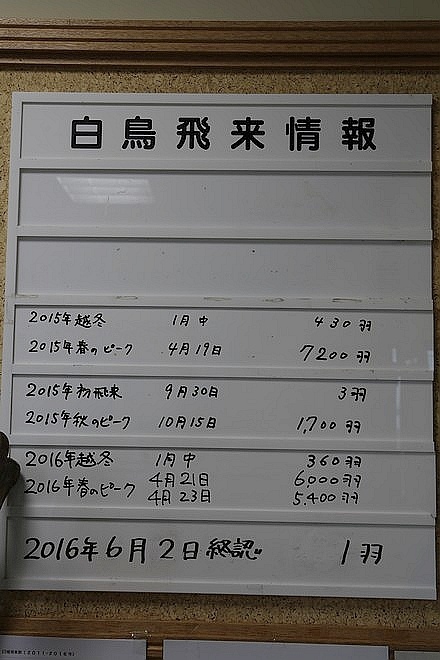 白鳥飛来情報
2015年越冬 1月中 430羽
2015年春のピーク 4月19日 7200羽
2015年初飛来 9月30日 3羽
2015年秋のピーク 10月15日 1,700羽
2016年越冬 1月中 360羽
2016年春のピーク 4月21日 6000羽
4月23日 5,400羽
2016年6月2日終認 1羽